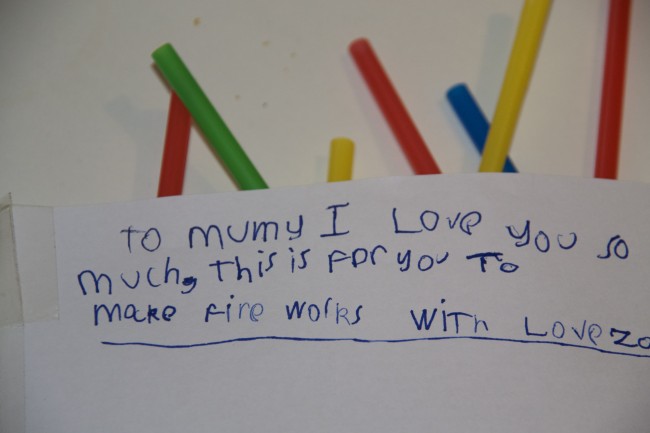 To mumy I Love you so
much, this is for you To
make fire works with Love zo